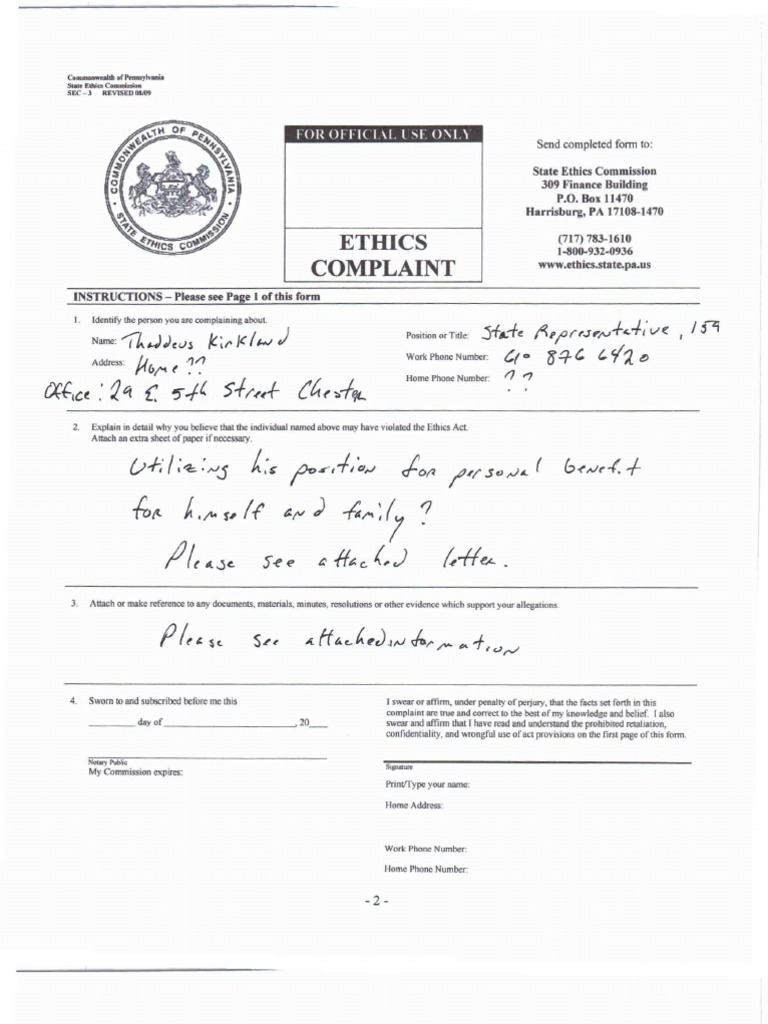 Commonwealth of Pennsylvania
State Ethics Commission
SEC – 3 REVISED 08/09
COMMONWEALTH OF PENNSYLVANIA
STATE ETHICS COMMISSION
FOR OFFICIAL USE ONLY
ETHICS
COMPLAINT
Send completed form to:
State Ethics Commission
309 Finance Building
P.O. Box 11470
Harrisburg, PA 17108-1470
(717) 783-1610
1-800-932-0936
www.ethics.state.pa.us
INSTRUCTIONS – Please see Page 1 of this form
1. Identify the person you are complaining about.
Name: Thaddeus Kirkland
Address: Home ??
Office: 29 E. 5th Street Chester
Position or Title: State Representative, 159
Work Phone Number: 610 876 6420
Home Phone Number: ??
2. Explain in detail why you believe that the individual named above may have violated the Ethics Act.
Attach an extra sheet of paper if necessary.
Utilizing his position for personal benefit
for himself and family?
Please see attached letter.
3. Attach or make reference to any documents, materials, minutes, resolutions or other evidence which support your allegations.
Please see attached information
4. Sworn to and subscribed before me this
________ day of ______________________, 20___
Notary Public
My Commission expires:
I swear or affirm, under penalty of perjury, that the facts set forth in this
complaint are true and correct to the best of my knowledge and belief. I also
swear and affirm that I have read and understand the prohibited retaliation,
confidentiality, and wrongful use of act provisions on the first page of this form.
Signature
Print/Type your name:
Home Address:
Work Phone Number:
Home Phone Number:
- 2 -